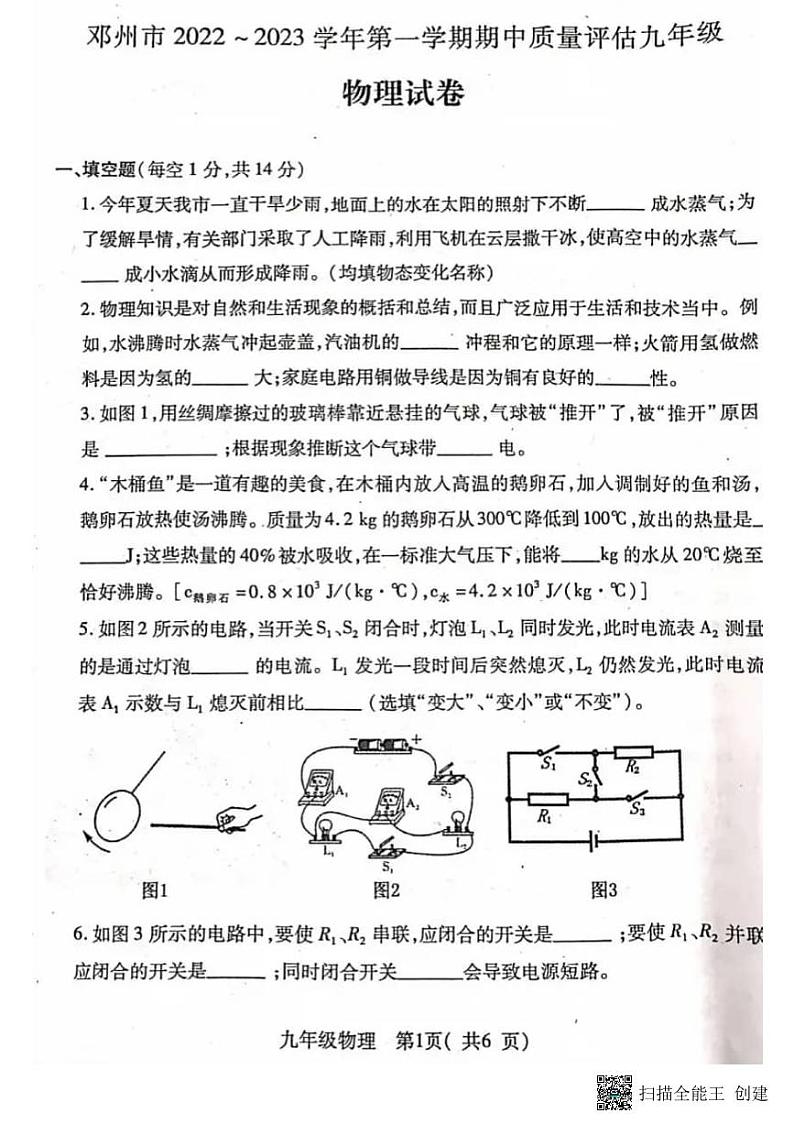 邓州市2022~2023学年第一学期期中质量评估九年级
物理试卷
一、填空题(每空1分,共14分)
1.今年夏天我市一直干旱少雨,地面上的水在太阳的照射下不断______成水蒸气;为
了缓解旱情,有关部门采取了人工降雨,利用飞机在云层撒干冰,使高空中的水蒸气__
____成小水滴从而形成降雨。(均填物态变化名称)
2.物理知识是对自然和生活现象的概括和总结,而且广泛应用于生活和技术当中。例
如,水沸腾时水蒸气冲起壶盖,汽油机的______冲程和它的原理一样;火箭用氢做燃
料是因为氢的______大;家庭电路用铜做导线是因为铜有良好的______性。
3.如图1,用丝绸摩擦过的玻璃棒靠近悬挂的气球,气球被“推开”了,被“推开”原因
是____________;根据现象推断这个气球带______电。
4.“木桶鱼”是一道有趣的美食,在木桶内放人高温的鹅卵石,加人调制好的鱼和汤,
鹅卵石放热使汤沸腾。质量为4.2 kg的鹅卵石从300℃降低到100℃,放出的热量是_
_____J;这些热量的40%被水吸收,在一标准大气压下,能将____kg的水从20℃烧至
恰好沸腾。[c鹅卵石=0.8×10³ J/(kg·℃),c水=4.2×10³ J/(kg·℃)]
5.如图2所示的电路,当开关S₁、S₂闭合时,灯泡L₁、L₂同时发光,此时电流表A₂测量
的是通过灯泡______的电流。L₁发光一段时间后突然熄灭,L₂仍然发光,此时电流
表A₁示数与L₁熄灭前相比______(选填“变大”、“变小”或“不变”)。
- +
A₁ A₂ S₂
L₁ S₁ L₂
S₁ S₂ R₂
R₁ S₃
图1 图2 图3
6.如图3所示的电路中,要使R₁、R₂串联,应闭合的开关是______;要使R₁、R₂并联
应闭合的开关是______;同时闭合开关______会导致电源短路。
九年级物理 第1页( 共6 页)
扫描全能王 创建